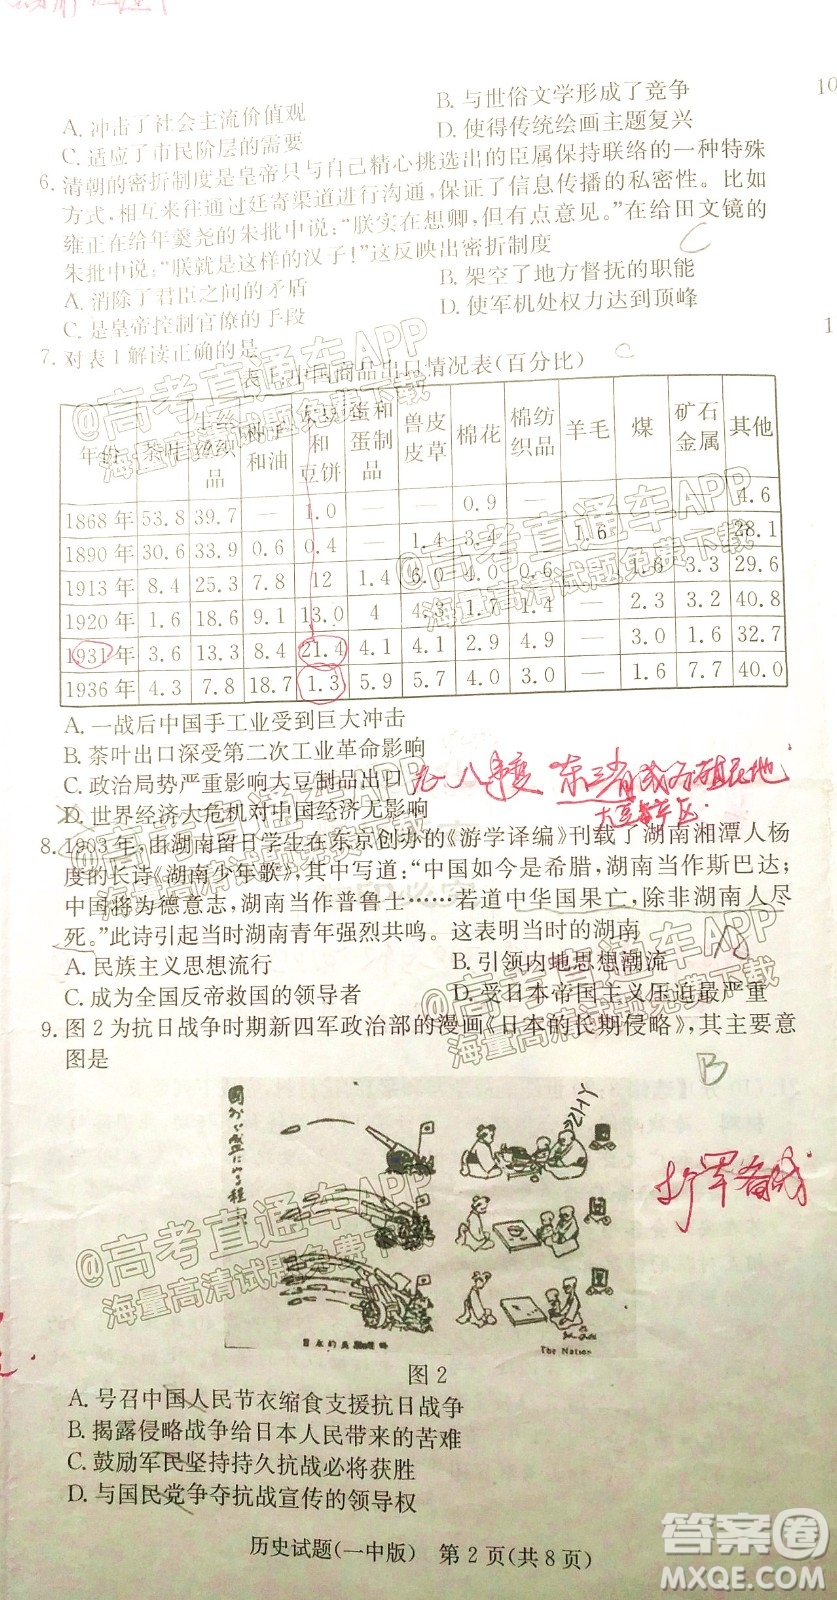 A. 冲击了社会主流价值观 B. 与世俗文学形成了竞争
C. 适应了市民阶层的需要 D. 使得传统绘画主题复兴
10
6. 清朝的密折制度是皇帝只与自己精心挑选出的臣属保持联络的一种特殊
方式,相互来往通过廷寄渠道进行沟通,保证了信息传播的私密性。比如
雍正在给年羹尧的朱批中说:“朕实在想卿,但有点意见。”在给田文镜的
朱批中说:“朕就是这样的汉子!”这反映出密折制度
C
A. 消除了君臣之间的矛盾 B. 架空了地方督抚的职能
C. 是皇帝控制官僚的手段 D. 使军机处权力达到顶峰
1
7. 对表1解读正确的是
C
表1 中国商品出口情况表(百分比)
年份 茶叶 生丝丝织品 和油 大豆和豆饼 蛋和蛋制品 兽皮皮草 棉花 棉纺织品 羊毛 煤 矿石金属 其他
1868年 53.8 39.7 — 1.0 — — 0.9 — 4.6
1890年 30.6 33.9 0.6 0.4 — 1.4 3.4 — 1.6 28.1
1913年 8.4 25.3 7.8 12 1.4 6.0 4.0 0.6 — 1.6 3.3 29.6
1920年 1.6 18.6 9.1 13.0 4 4.3 1.7 1.4 — 2.3 3.2 40.8
1931年 3.6 13.3 8.4 21.4 4.1 4.1 2.9 4.9 — 3.0 1.6 32.7
1936年 4.3 7.8 18.7 1.3 5.9 5.7 4.0 3.0 — 1.6 7.7 40.0
A. 一战后中国手工业受到巨大冲击
B. 茶叶出口深受第二次工业革命影响
C. 政治局势严重影响大豆制品出口
九一八事变 东三省成为殖民地
D. 世界经济大危机对中国经济无影响
8. 1903年,由湖南留日学生在东京创办的《游学译编》刊载了湖南湘潭人杨
度的长诗《湖南少年歌》,其中写道:“中国如今是希腊,湖南当作斯巴达;
中国将为德意志,湖南当作普鲁士……若道中华国果亡,除非湖南人尽
死。”此诗引起当时湖南青年强烈共鸣。这表明当时的湖南
A
A. 民族主义思想流行 B. 引领内地思想潮流
C. 成为全国反帝救国的领导者 D. 受日本帝国主义压迫最严重
9. 图2为抗日战争时期新四军政治部的漫画《日本的长期侵略》,其主要意
图是
B
The Nation
图2
A. 号召中国人民节衣缩食支援抗日战争
B. 揭露侵略战争给日本人民带来的苦难
C. 鼓励军民坚持持久抗战必将获胜
D. 与国民党争夺抗战宣传的领导权
历史试题(一中版) 第2页(共8页)
@高考直通车APP
海量高清试题免费下载
@高考直通车APP
海量高清试题免费下载
@高考直通车APP
海量高清试题免费下载
@高考直通车APP
海量高清试题免费下载
@高考直通车APP
海量高清试题免费下载
答案圈
MXQE.COM